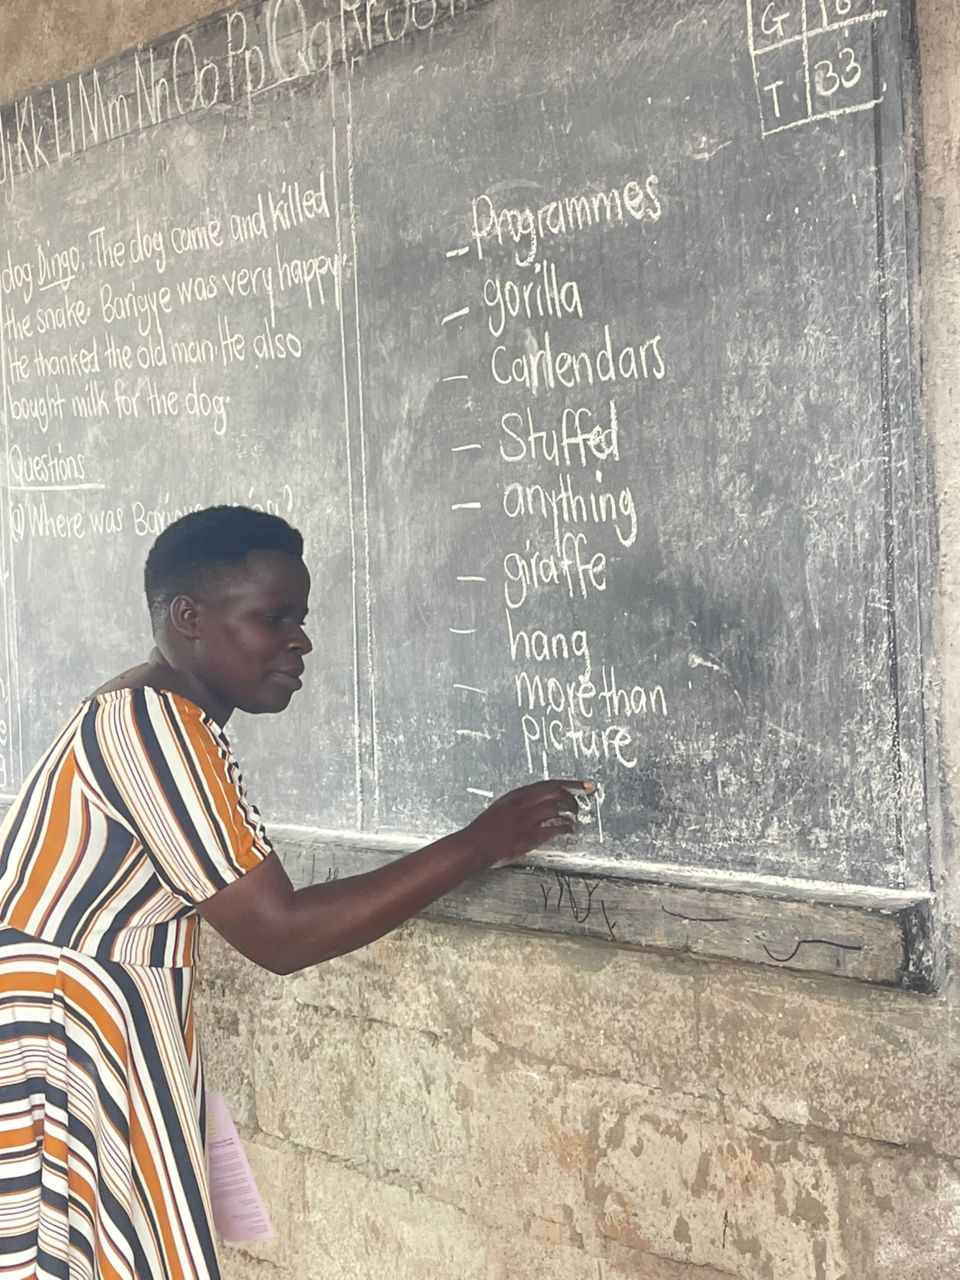 Kk Ll Mm Nn Oo Pp Qq Rr
G 18
T 33
dog Dingo. The dog came and killed
the snake. Barigye was very happy.
He thanked the old man. He also
bought milk for the dog.
Questions
a) Where was
- Programmes
- gorilla
- Carlendars
- Stuffed
- anything
- giraffe
- hang
- more than
- picture
-